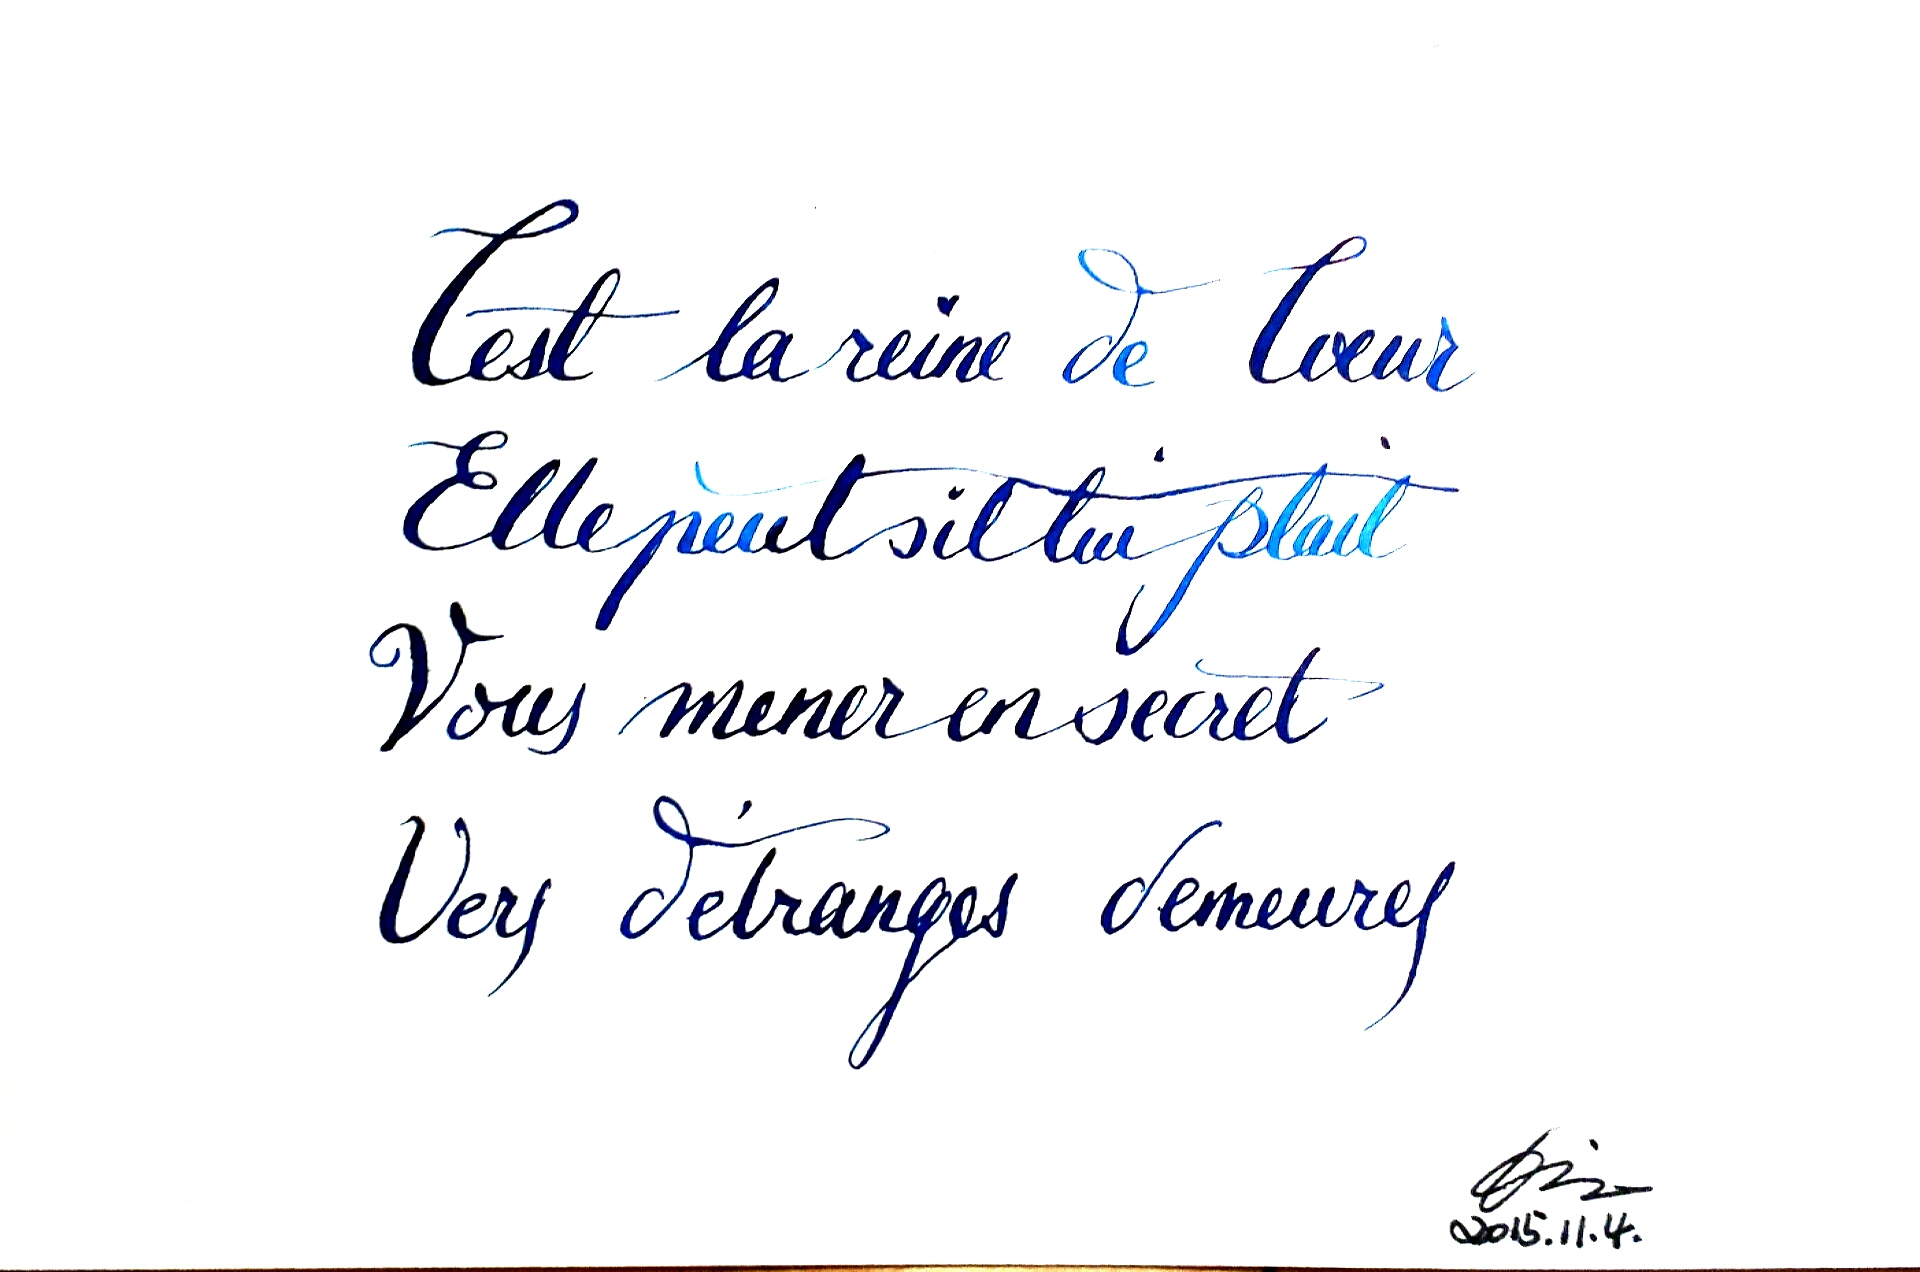 C'est la reine de Coeur
Elle peut s'il lui plait
Vous mener en secret
Vers d'étranges demeures
2015.11.4.